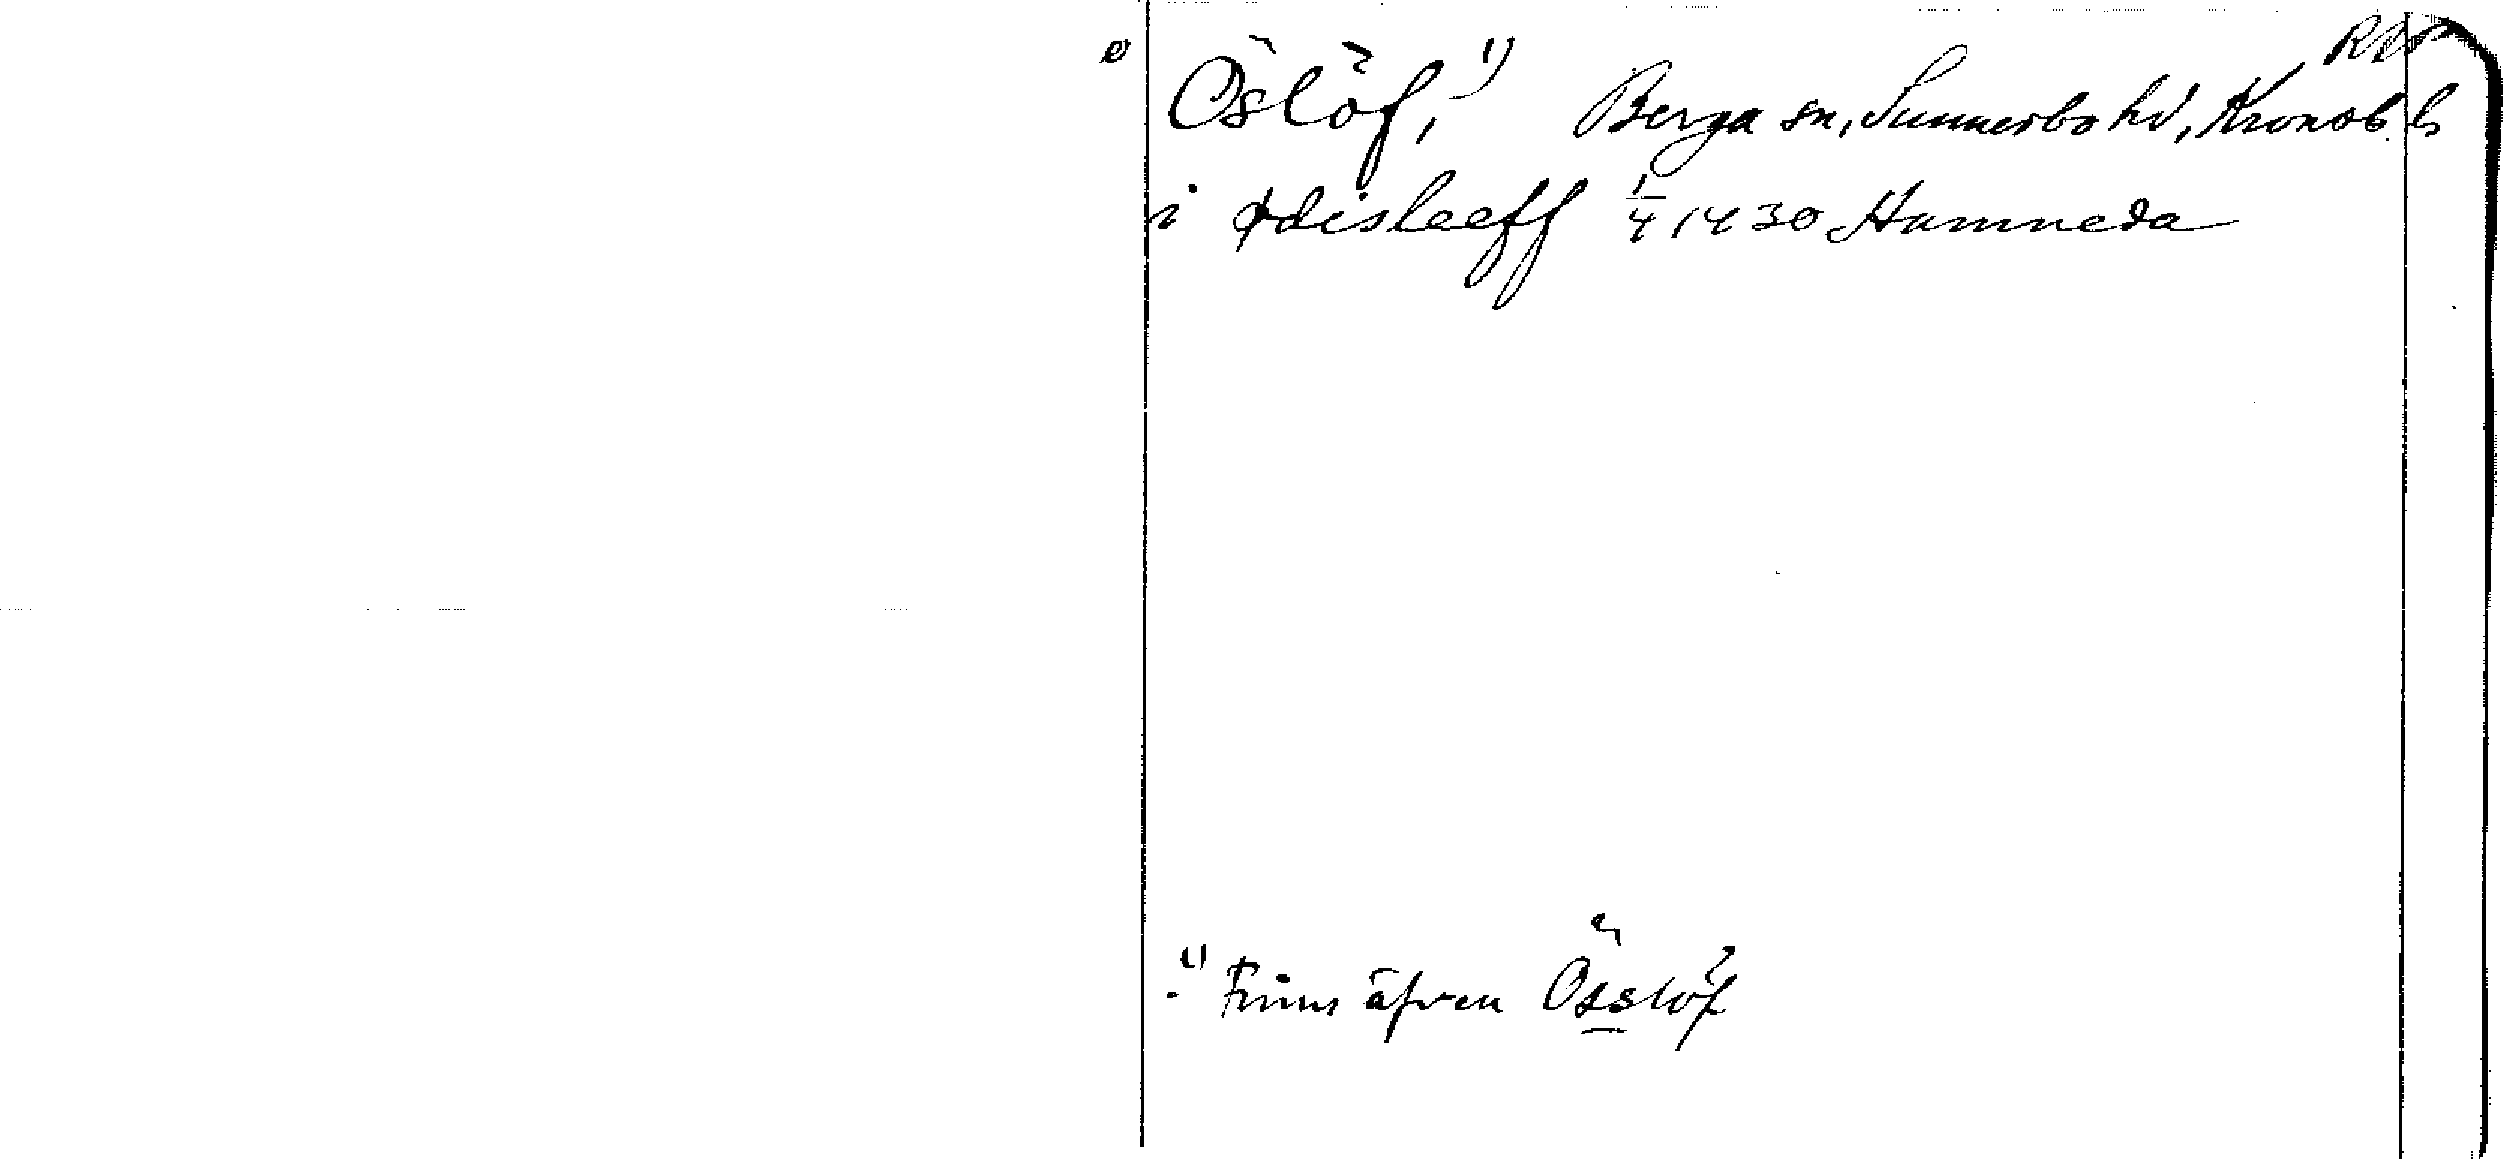 RA
Öslöf, 1) Berga sn, Sunnerbo hd, Kronob. l
i Ødisleeff 1/4 1430 Hamneda
1) Finns äfven Össlöf